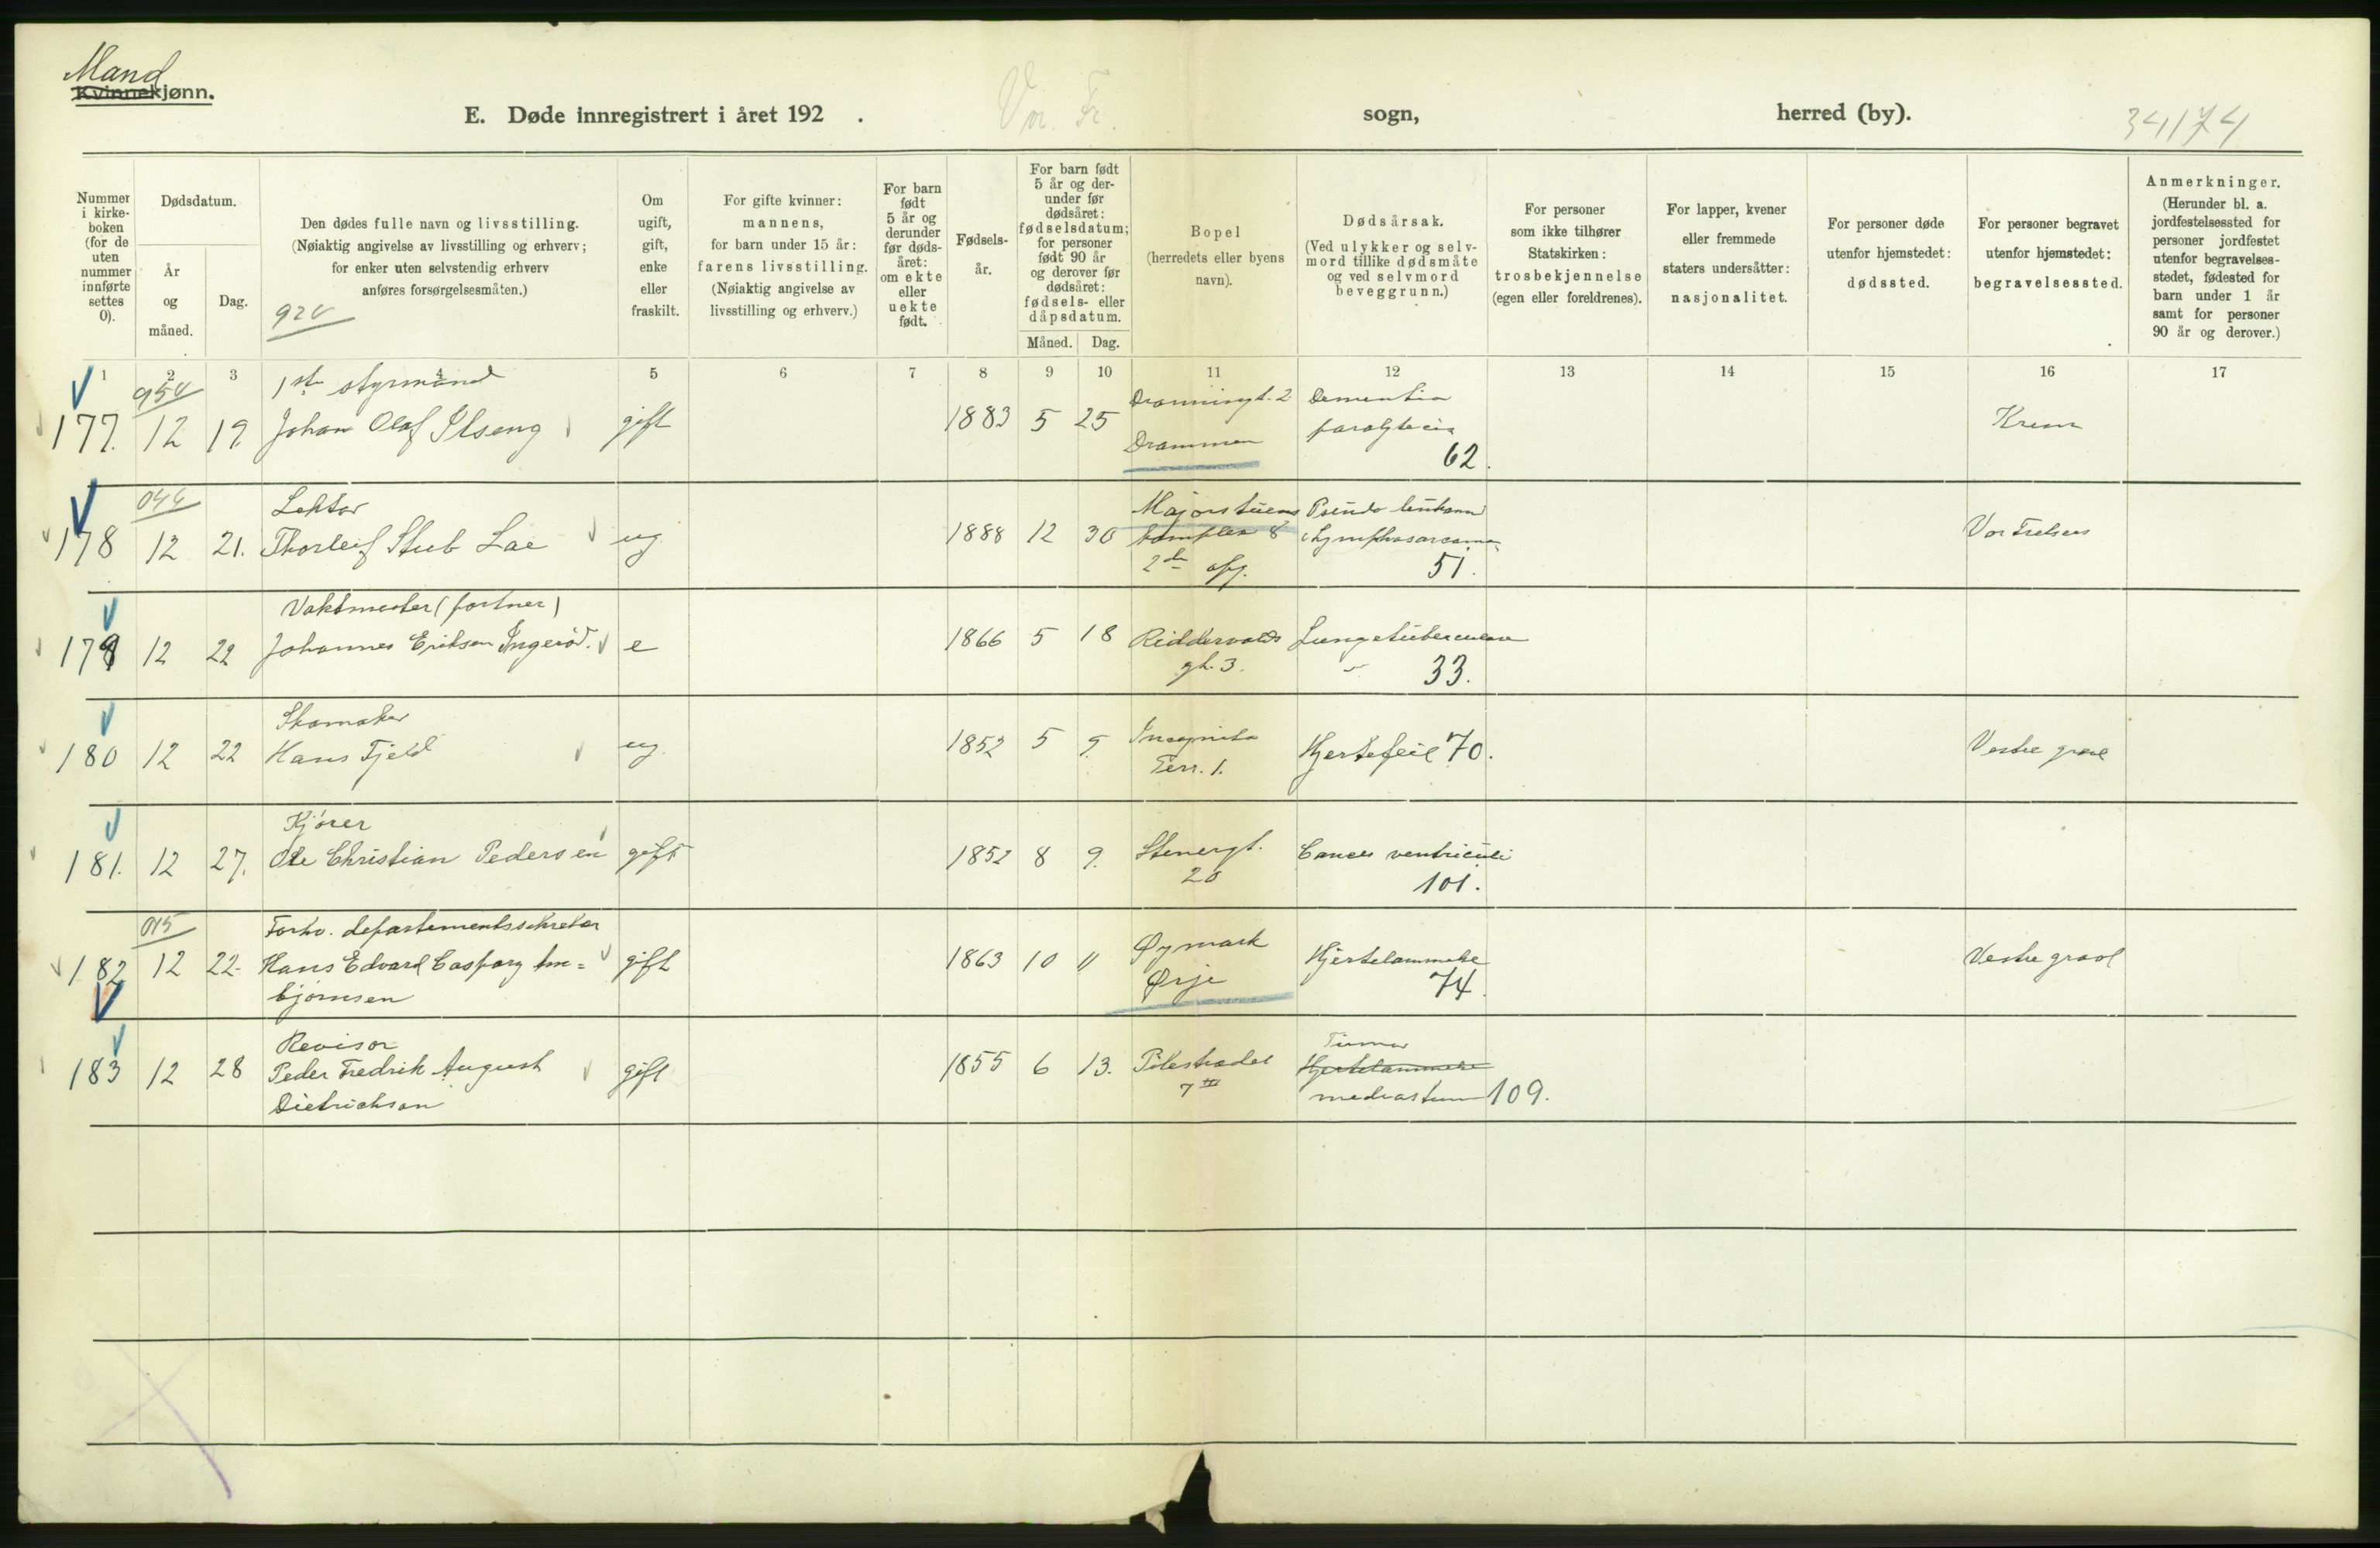 Mand
Kvinnekjønn.
E. Døde innregistrert i året 192 .
Vor. Fr.
sogn,
herred (by).
34174
Nummer i kirke-boken (for de uten nummer innførte settes 0).
Dødsdatum.
År og måned.
Dag.
Den dødes fulle navn og livsstilling.
(Nøiaktig angivelse av livsstilling og erhverv;
for enker uten selvstendig erhverv
anføres forsørgelsesmåten.)
920
Om ugift, gift, enke eller fraskilt.
For gifte kvinner:
mannens,
for barn under 15 år:
farens livsstilling.
(Nøiaktig angivelse av
livsstilling og erhverv.)
For barn født 5 år og derunder før døds-året: om ekte eller uekte født.
Fødsels-år.
For barn født 5 år og der-under før dødsåret: fødselsdatum; for personer født 90 år og derover før dødsåret: fødsels- eller dåpsdatum.
Måned.
Dag.
Bopel
(herredets eller byens
navn).
Dødsårsak.
(Ved ulykker og selv-
mord tillike dødsmåte
og ved selvmord
beveggrunn.)
For personer
som ikke tilhører
Statskirken:
trosbekjennelse
(egen eller foreldrenes).
For lapper, kvener
eller fremmede
staters undersåtter:
nasjonalitet.
For personer døde
utenfor hjemstedet:
dødssted.
For personer begravet
utenfor hjemstedet:
begravelsessted.
Anmerkninger.
(Herunder bl. a.
jordfestelsessted for
personer jordfestet
utenfor begravelses-
stedet, fødested for
barn under 1 år
samt for personer
90 år og derover.)
1 2 3 4 5 6 7 8 9 10 11 12 13 14 15 16 17
950 1ste styrmand Dronningt. 2 Dementia
177. 12 19. Johan Olaf Ilseng gift 1883 5 25 Drammen paralytica Krem
62.
044 Lektor Majorstuens Pseudo leukämi
178 12 21. Thorleif Stub Lae ug. 1888 12 30 komplex 8 (Lymphosarcoma Vor Frelsers
2den opg. 51.
Vaktmester (portner)
179 12 22 Johannes Eriksen Ingeröd. e 1866 5 18 Riddervolds Lungetuberculose
gt. 3. 33.
Skomaker
180 12 22 Hans Fjeld ug. 1852 5 9. Incognito Hjertefeil 70. Vestre gravl
Terr. 1.
Kjører
181. 12 27. Ole Christian Pedersen gift 1852 8 9. Stenergt. Cancer ventriculi
20 101.
015 Forhv. departementssekretær
182 12 22. Hans Edvard Caspary Im= gift 1863 10 11 Øymark Hjertelammelse Vestre gravl
bjørnsen Ørje 74.
Revisor Tumor
183 12 28 Peder Fredrik August gift 1855 6 13. Pilestrædet Hjertelammelse
Dietrichson 7 III mediastinum 109.